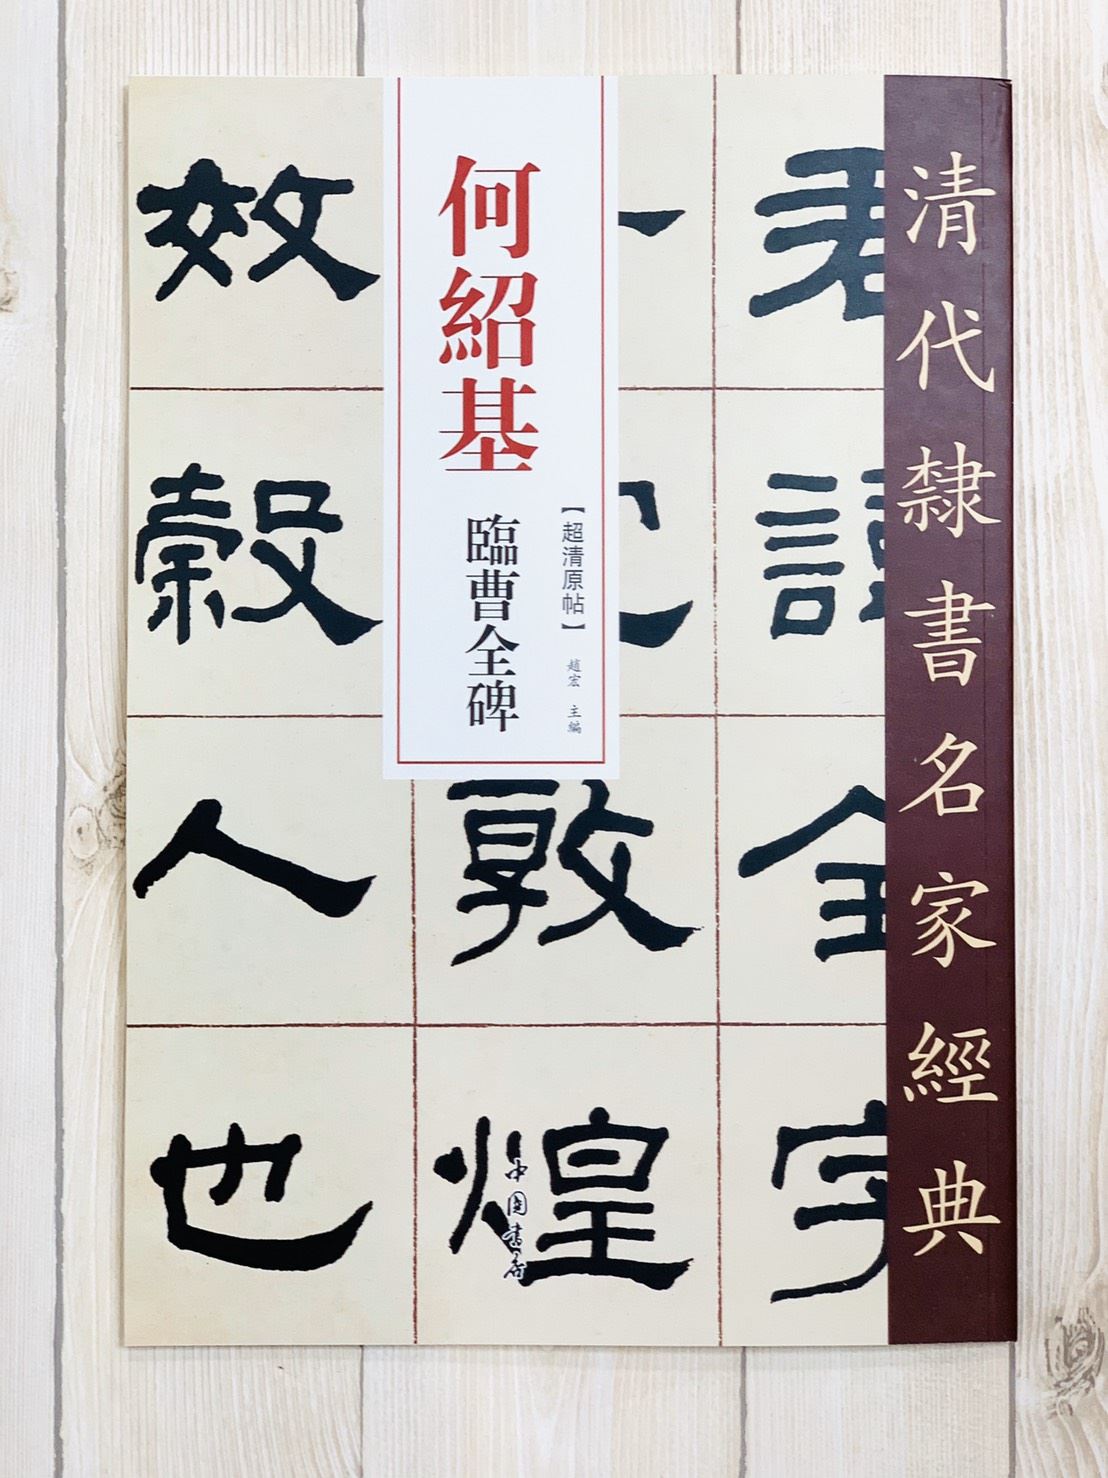 清代隸書名家經典
何紹基
臨曹全碑
【超清原帖】
趙宏 主編
君諱全字
敦煌
效穀人也
中國書店